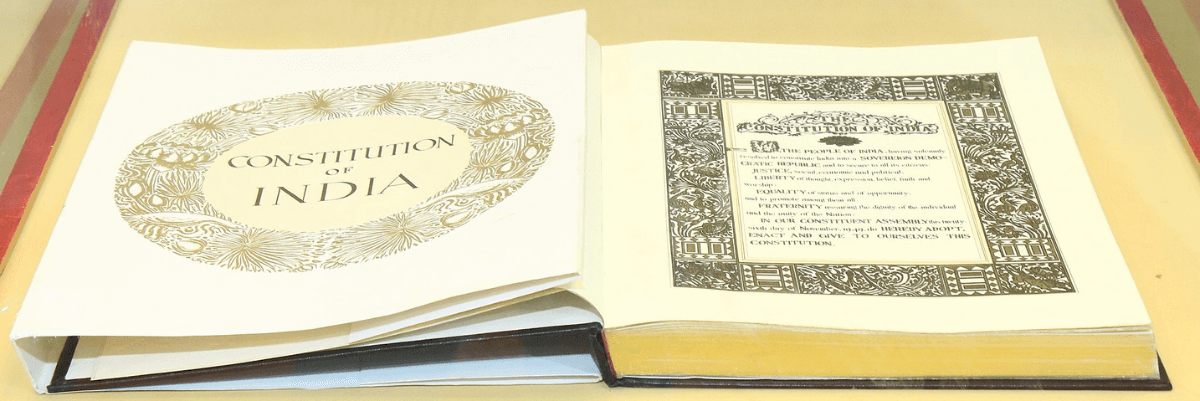 CONSTITUTION
OF
INDIA
THE
CONSTITUTION OF INDIA
WE, THE PEOPLE OF INDIA, having solemnly
resolved to constitute India into a SOVEREIGN DEMO-
CRATIC REPUBLIC and to secure to all its citizens:
JUSTICE, social, economic and political;
LIBERTY of thought, expression, belief, faith and
worship;
EQUALITY of status and of opportunity;
and to promote among them all
FRATERNITY assuring the dignity of the individual
and the unity of the Nation;
IN OUR CONSTITUENT ASSEMBLY this twenty
sixth day of November, 1949, do HEREBY ADOPT,
ENACT AND GIVE TO OURSELVES THIS
CONSTITUTION.